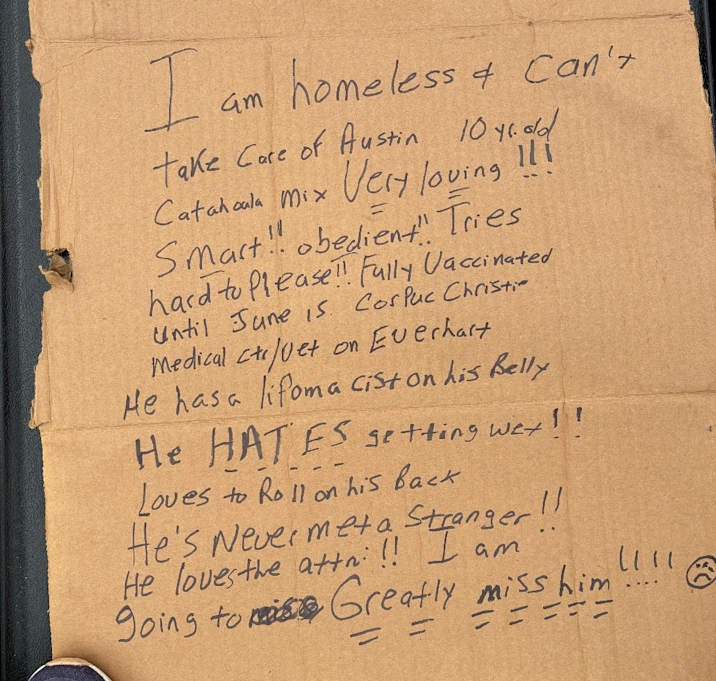 I am homeless & Can't
take Care of Austin 10 yr. old
Catahoula Mix Very loving !!!
Smart!! obedient!! Tries
hard to Please!! Fully Vaccinated
until June 15. Corpuc Christi
Medical ctr/vet on Everhart
He has a lipoma cist on his Belly
He HATES getting wet!!
Loves to Roll on his Back
He's Never met a Stranger!!
He loves the attn!! I am
going to Greatly miss him!!!!